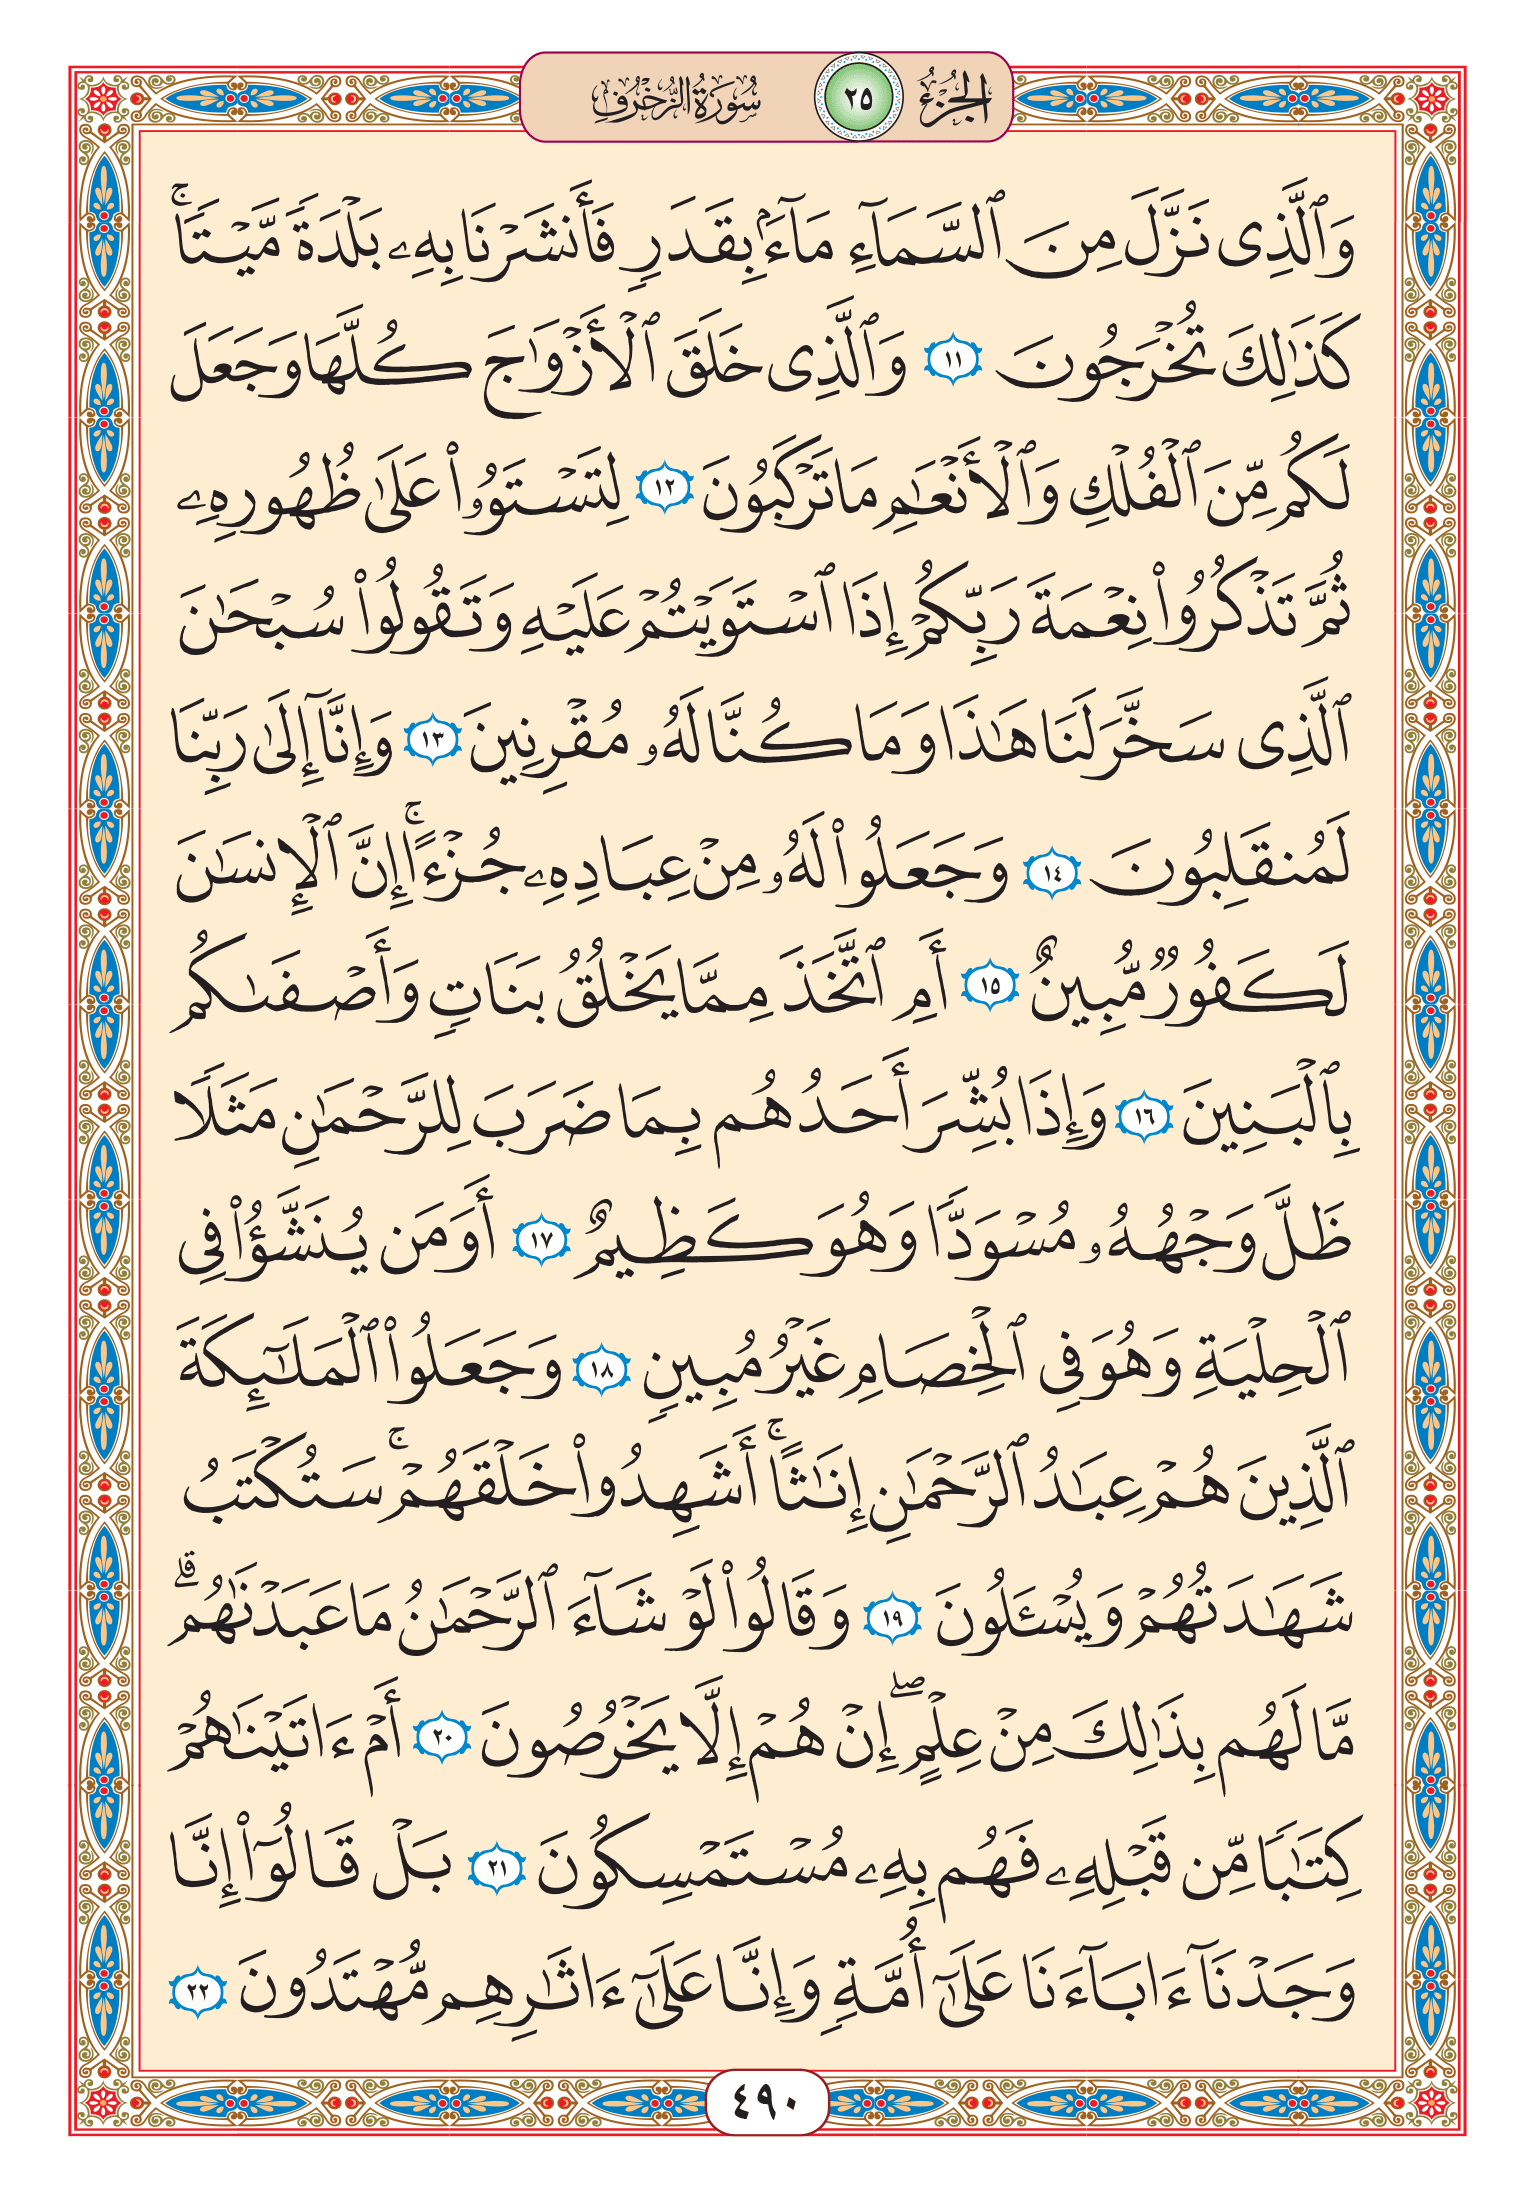 الجزء ٢٥ سورة الزخرف
وَٱلَّذِى نَزَّلَ مِنَ ٱلسَّمَآءِ مَآءَۢ بِقَدَرٍ فَأَنشَرۡنَا بِهِۦ بَلۡدَةٗ مَّيۡتٗاۚ
كَذَٰلِكَ تُخۡرَجُونَ ١١ وَٱلَّذِى خَلَقَ ٱلۡأَزۡوَٰجَ كُلَّهَا وَجَعَلَ
لَكُم مِّنَ ٱلۡفُلۡكِ وَٱلۡأَنۡعَٰمِ مَا تَرۡكَبُونَ ١٢ لِتَسۡتَوُۥاْ عَلَىٰ ظُهُورِهِۦ
ثُمَّ تَذۡكُرُواْ نِعۡمَةَ رَبِّكُمۡ إِذَا ٱسۡتَوَيۡتُمۡ عَلَيۡهِ وَتَقُولُواْ سُبۡحَٰنَ
ٱلَّذِى سَخَّرَ لَنَا هَٰذَا وَمَا كُنَّا لَهُۥ مُقۡرِنِينَ ١٣ وَإِنَّآ إِلَىٰ رَبِّنَا
لَمُنقَلِبُونَ ١٤ وَجَعَلُواْ لَهُۥ مِنۡ عِبَادِهِۦ جُزۡءًاۚ إِنَّ ٱلۡإِنسَٰنَ
لَكَفُورٞ مُّبِينٌ ١٥ أَمِ ٱتَّخَذَ مِمَّا يَخۡلُقُ بَنَاتٖ وَأَصۡفَىٰكُم
بِٱلۡبَنِينَ ١٦ وَإِذَا بُشِّرَ أَحَدُهُم بِمَا ضَرَبَ لِلرَّحۡمَٰنِ مَثَلٗا
ظَلَّ وَجۡهُهُۥ مُسۡوَدّٗا وَهُوَ كَظِيمٌ ١٧ أَوَمَن يُنَشَّؤُاْ فِى
ٱلۡحِلۡيَةِ وَهُوَ فِى ٱلۡخِصَامِ غَيۡرُ مُبِينٖ ١٨ وَجَعَلُواْ ٱلۡمَلَٰٓئِكَةَ
ٱلَّذِينَ هُمۡ عِبَٰدُ ٱلرَّحۡمَٰنِ إِنَٰثًاۚ أَشَهِدُواْ خَلۡقَهُمۡۚ سَتُكۡتَبُ
شَهَٰدَتُهُمۡ وَيُسۡـَٔلُونَ ١٩ وَقَالُواْ لَوۡ شَآءَ ٱلرَّحۡمَٰنُ مَا عَبَدۡنَٰهُمۗ
مَّا لَهُم بِذَٰلِكَ مِنۡ عِلۡمٍۖ إِنۡ هُمۡ إِلَّا يَخۡرُصُونَ ٢٠ أَمۡ ءَاتَيۡنَٰهُمۡ
كِتَٰبٗا مِّن قَبۡلِهِۦ فَهُم بِهِۦ مُسۡتَمۡسِكُونَ ٢١ بَلۡ قَالُوٓاْ إِنَّا
وَجَدۡنَآ ءَابَآءَنَا عَلَىٰٓ أُمَّةٖ وَإِنَّا عَلَىٰٓ ءَاثَٰرِهِم مُّهۡتَدُونَ ٢٢
٤٩٠